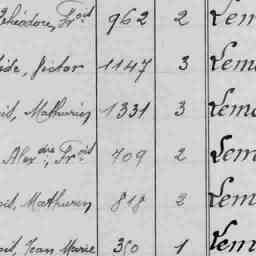 Théodore, Frois 962 2 Lem
Victor 1147 3 Lem
Mathurin 1331 3 Lem
Alexdre, Frois 709 2 Lem
Mathurin 818 2 Lem
Jean Marie 310 1 Lem